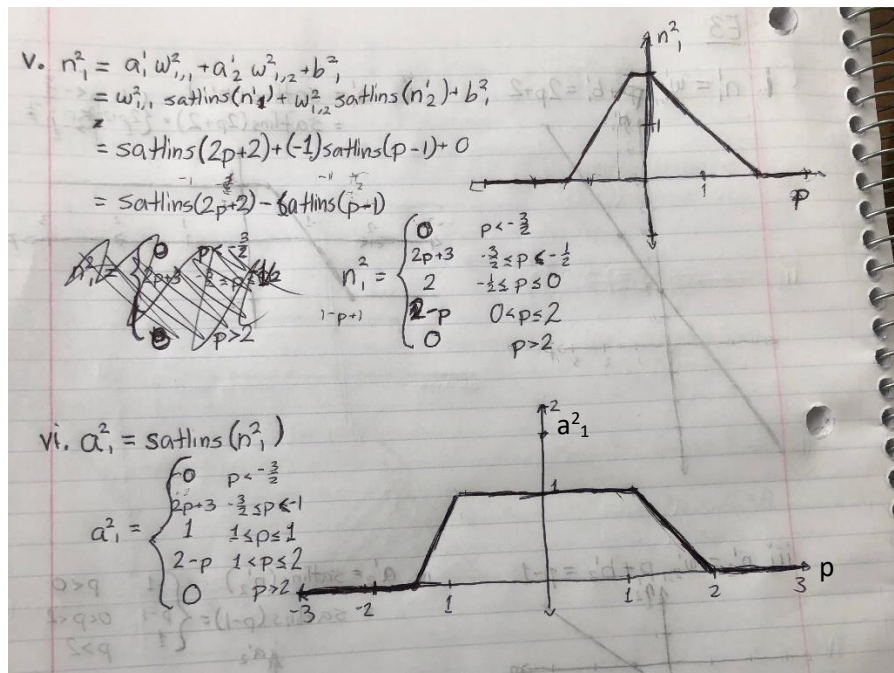 v. n²₁ = a¹₁ w²₁,₁ + a¹₂ w²₁,₂ + b²₁
= w²₁,₁ satlins(n¹1) + w²₁,₂ satlins(n¹₂) + b²₁
= satlins(2p+2) + (-1)satlins(p-1) + 0
= satlins(2p+2) - satlins(p-1)
n²₁
1
1
p
n²₁ =
0 p < -3/2
2p+3 -3/2 ≤ p ≤ -1/2
2 -1/2 ≤ p ≤ 0
2-p 0 < p ≤ 2
0 p > 2
1-p+1
vi. a²₁ = satlins(n²₁)
a²₁ =
0 p < -3/2
2p+3 -3/2 ≤ p < -1
1 1 ≤ p ≤ 1
2-p 1 < p ≤ 2
0 p > 2
2
a²₁
1
-3 -2 1 1 2 3
p